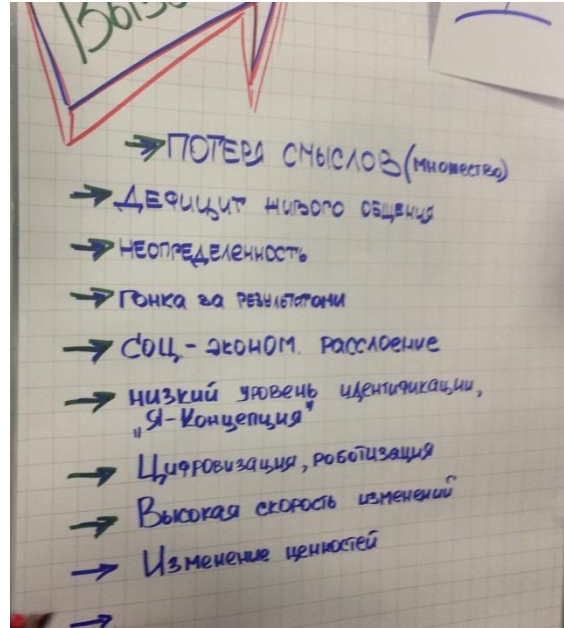 → ПОТЕРЯ СМЫСЛОВ (множество)
→ ДЕФИЦИТ живого общения
→ НЕОПРЕДЕЛЕННОСТЬ
→ Гонка за результатами
→ СОЦ.-эконом. расслоение
→ низкий уровень идентификации,
„Я-Концепция"
→ Цифровизация, роботизация
→ Высокая скорость изменений
→ Изменение ценностей
→